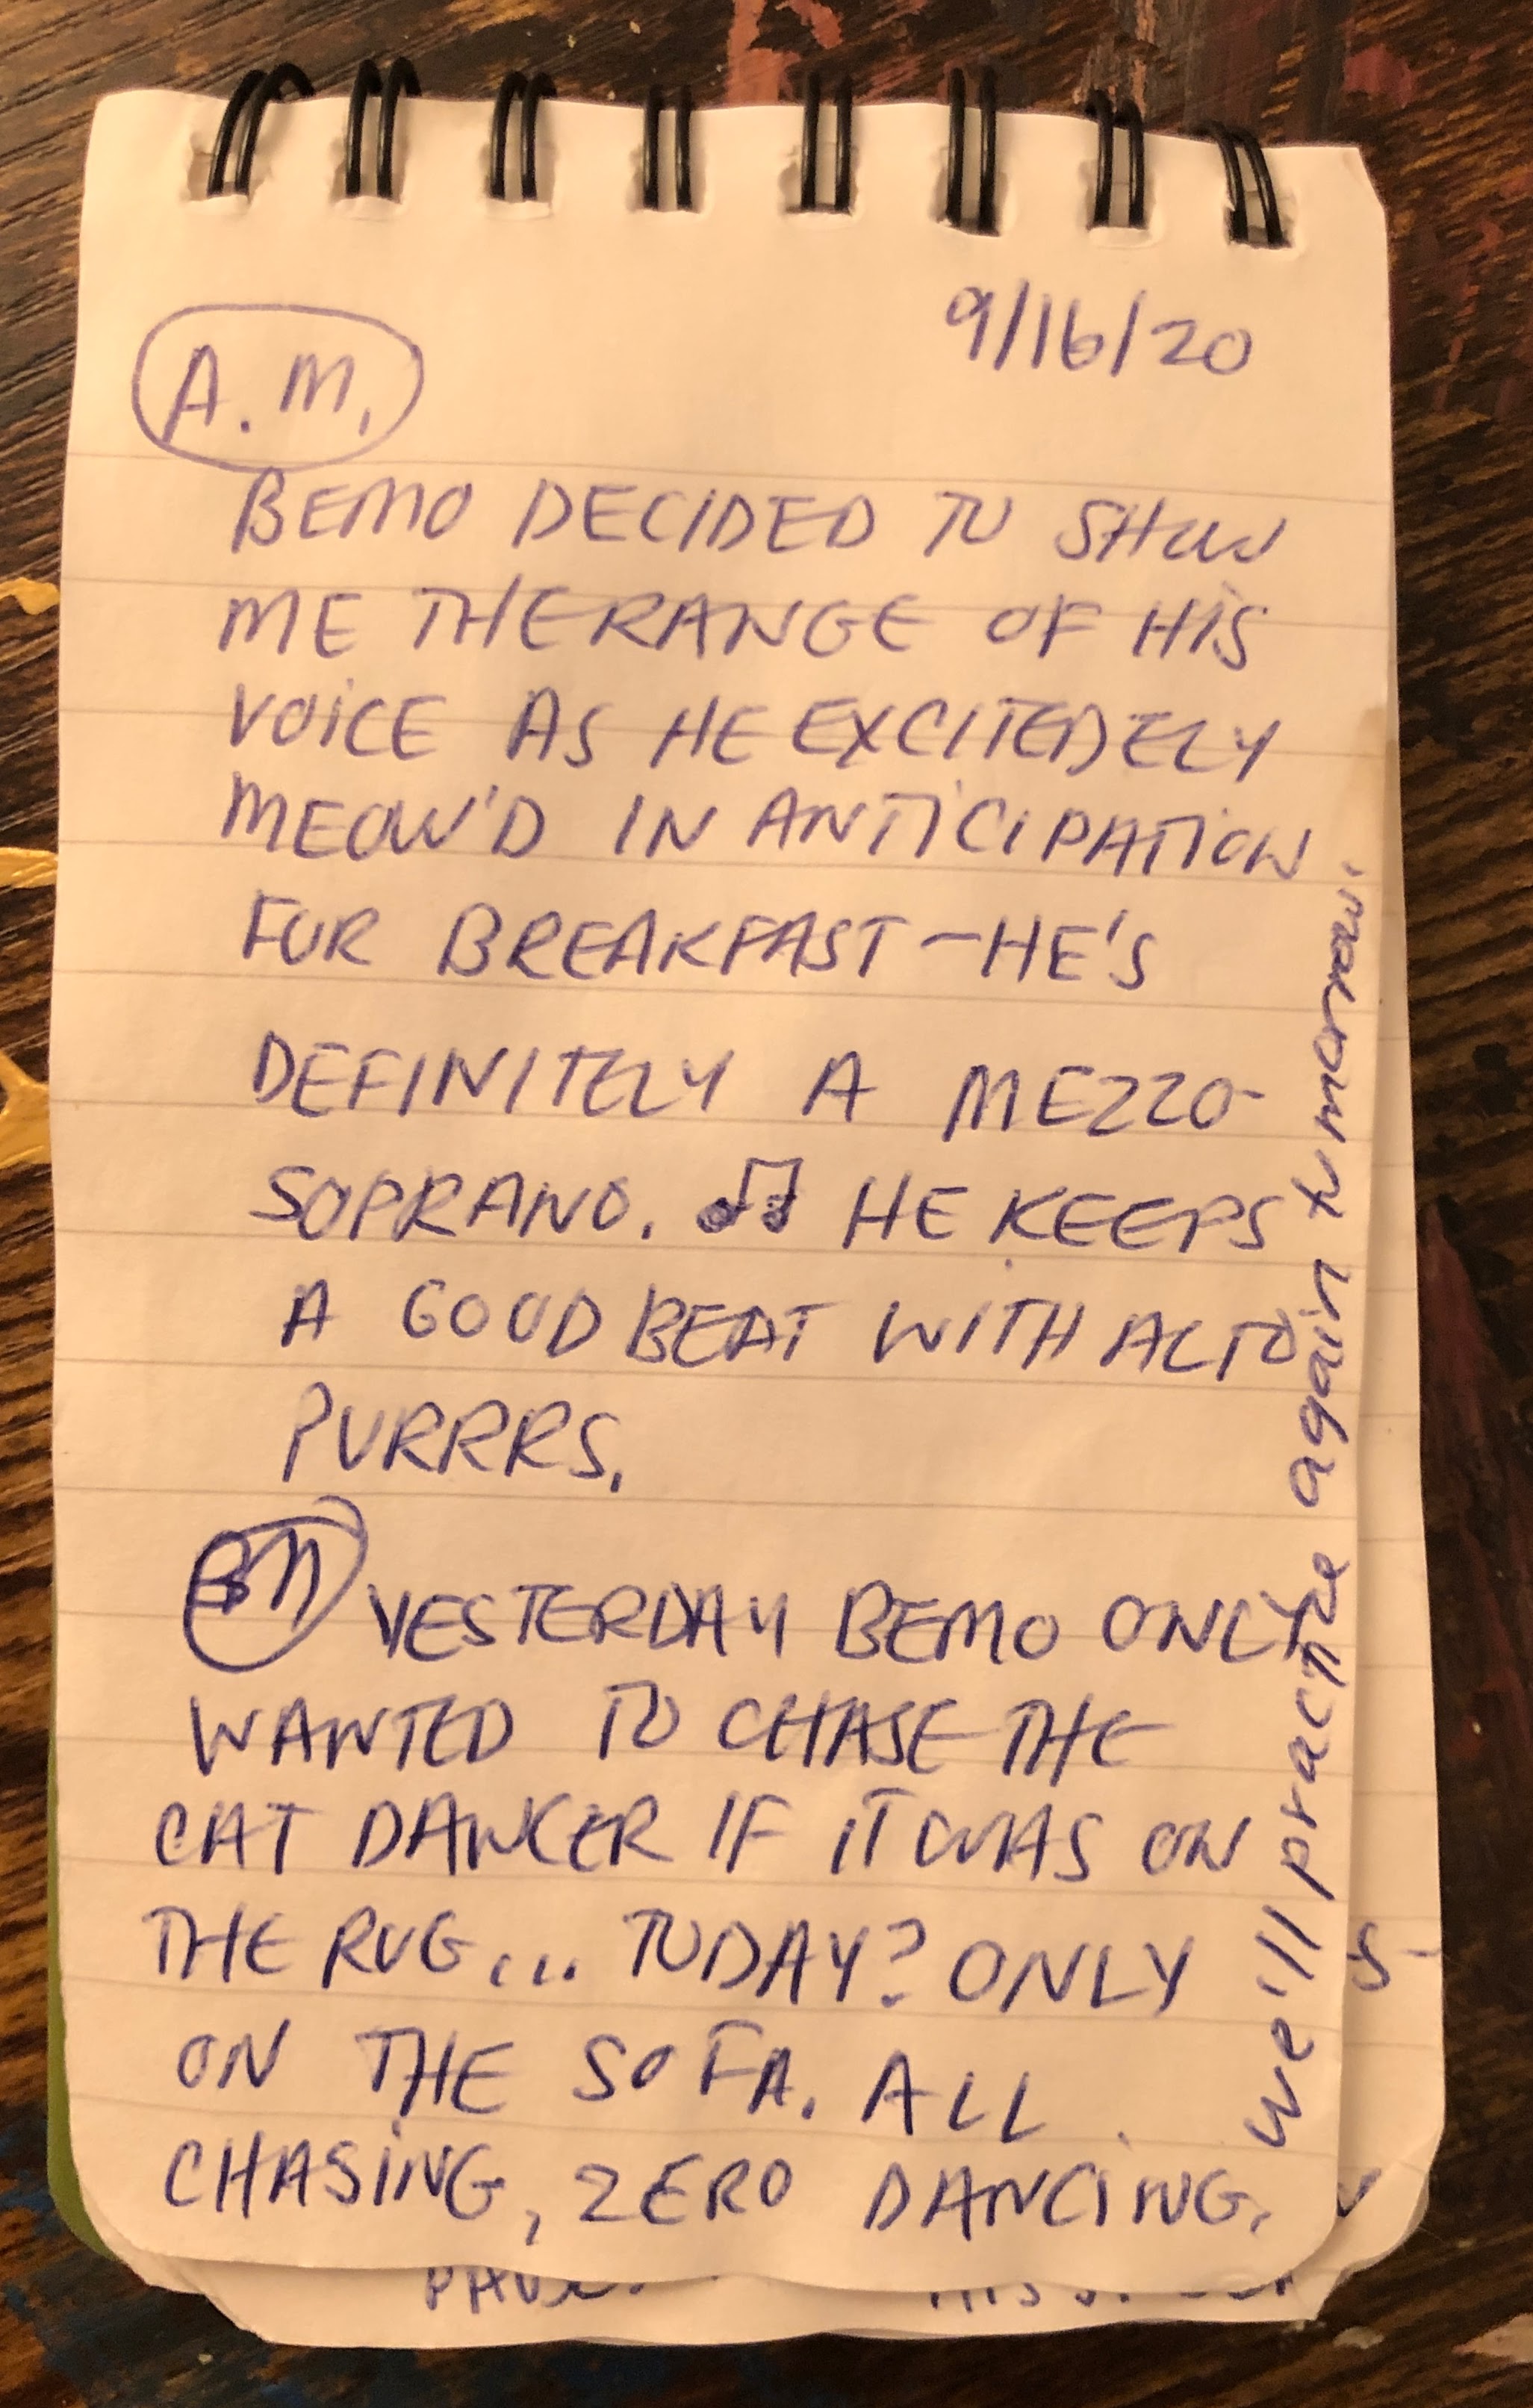 9/16/20
A.M.
BEMO DECIDED TO SHOW
ME THE RANGE OF HIS
VOICE AS HE EXCITEDELY
MEOW'D IN ANTICIPATION
FOR BREAKFAST - HE'S
DEFINITELY A MEZZO-
SOPRANO. ♫ HE KEEPS
A GOOD BEAT WITH ALTO
PURRRS.
YESTERDAY BEMO ONLY
WANTED TO CHASE THE
CAT DANCER IF IT WAS ON
THE RUG... TODAY? ONLY
ON THE SOFA. ALL
CHASING, ZERO DANCING.
we'll practice again tomorrow.